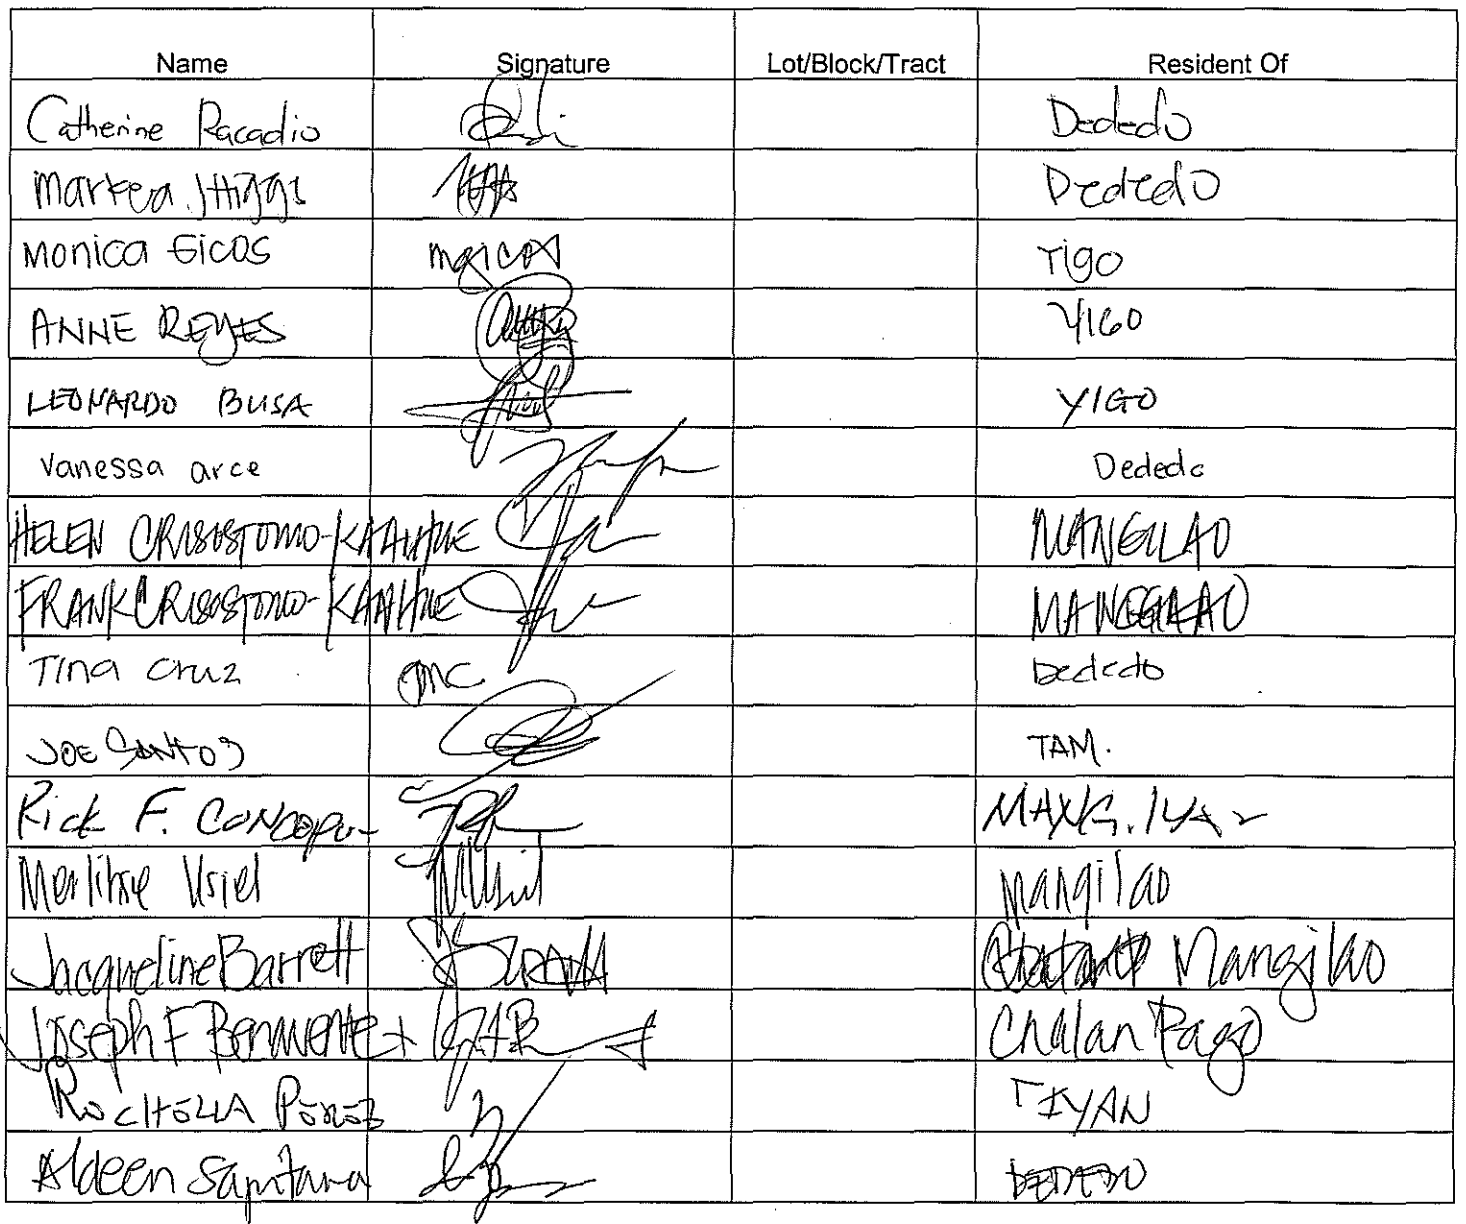 Name Signature Lot/Block/Tract Resident Of
Catherine Racadio Dededo
Markea J Higgs Dededo
Monica Gicos mgicos Yigo
ANNE REYES YIGO
LEONARDO BUSA YIGO
Vanessa arce Dededo
HELEN CRISOSTOMO-KAAIHUE MANGILAO
FRANK CRISOSTOMO-KAAIHUE MANGILAO
Tina Cruz TMC Dededo
JOE SANTOS TAM.
Rick F.
Merlithe Usiel Mangilao
Jacqueline Barrett Mangilao
Joseph F Benavente Chalan Pago
ROCHELLA PEREZ TIYAN
Aldeen Santana DEDEDO